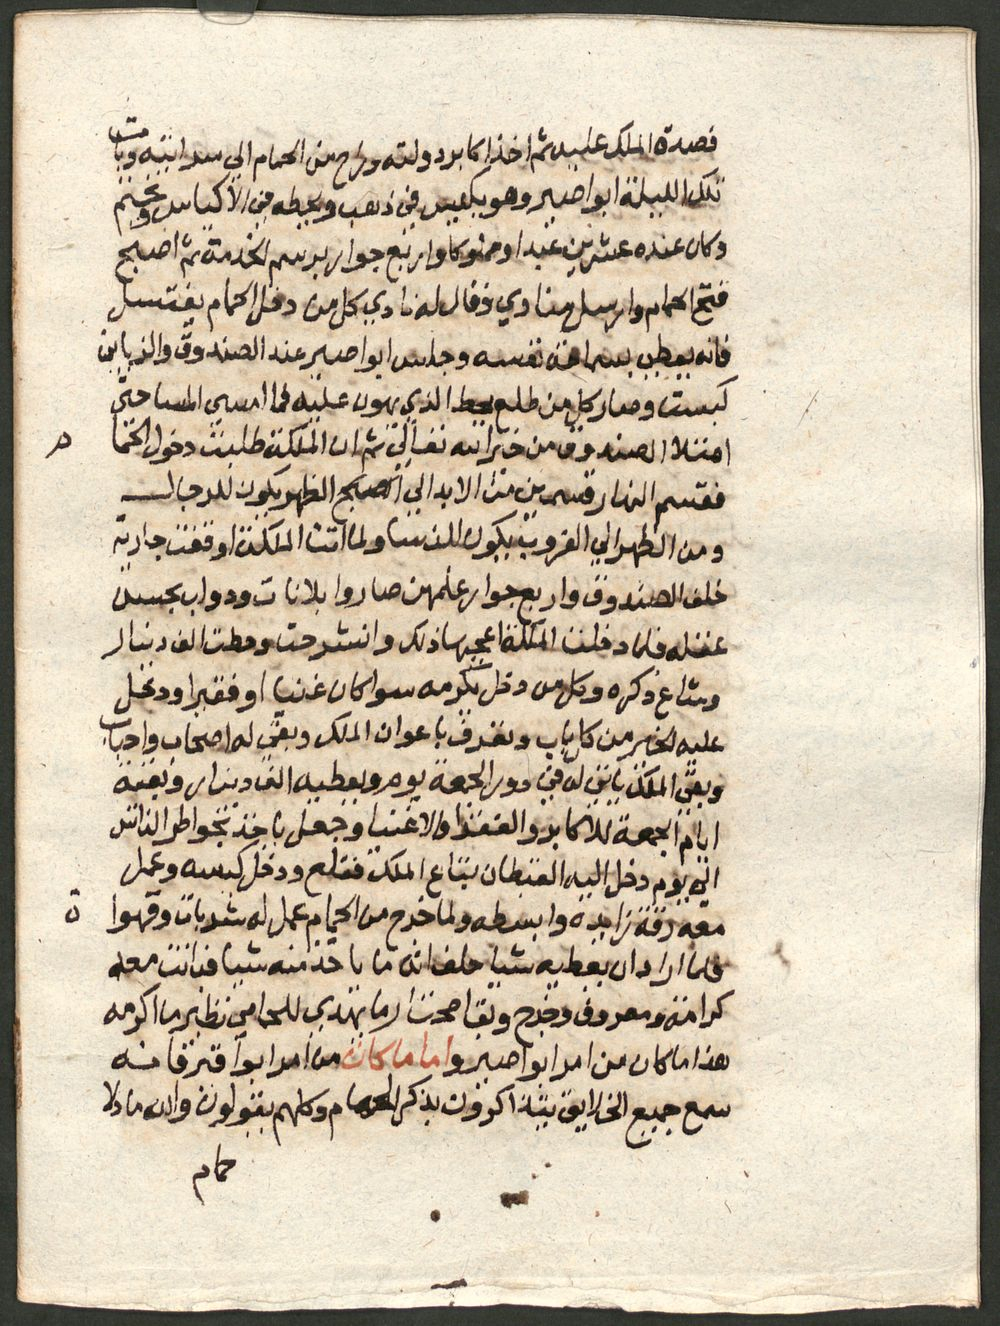 فصدق الملك عليه ثم اخذ اكابر دولته وراح من الحمام الي سرايته وبات
تلك الليلة ابو اصير وهو يكبس في ذهب ويحطه في الاكياس ويختم
وكان عنده عشرين عبدا ومملوكا واربع جوار برسم الخدمة ثم اصبح
فتح الحمام وارسل منادي وقال له نادي كل من دخل الحمام يغتسل
فانه يعطي بسماحة نفسه وجلس ابو اصير عند الصندوق والزباين
كبست وصار كل من طلع يحط الذي يهون عليه فما امسي المسا حتي
امتلا الصندوق من خيرات الله تعالي ثم ان الملكة طلبت دخول الحما م
فقسم النهار قسمين من الابد الي الضهر يكون للرجال
ومن الظهر الي الغروب يكون للنسا ولما اتت الملكة اوقفت جارية
خلف الصندوق واربع جوار علمهن صاروا بلانات ودواب بحسن
عقله فلما دخلت الملكة اعجبها ذلك وانشرحت وحطت الف دينار
وشاع ذكره وكل من دخل يكرمه سوا كان غنيا او فقيرا ودخل
عليه الخير من كل باب وتعرف باعوان الملك وبقي له اصحاب واحباب
وبقي الملك ياتي له في دور الجمعة يوم ويعطيه الف دينار وبقية
ايام الجمعة للاكابر والفقرا والاغنيا وجعل ياخذ بخواطر الناس
الي يوم دخل اليه القبطان بتاع الملك فقلع ودخل كبسه وعمل
معه رقة زايدة وابسطه ولما خرج من الحمام عمل له شربات وقهوا ة
فلما اراد ان يعطيه شيا حلف انه ما ياخذ منه شيا فباتت معه
كرامة ومعروف وخرج وبقا محتار ما يهدي للحمامي نظير ما اكرمه
هذا ما كان من امر ابو اصير واما ما كان من امر ابو اقير فانه
سمع جميع الخلايق يتذاكرون بذكر الحمام وكلهم يقولون والله ما دلا
حمام